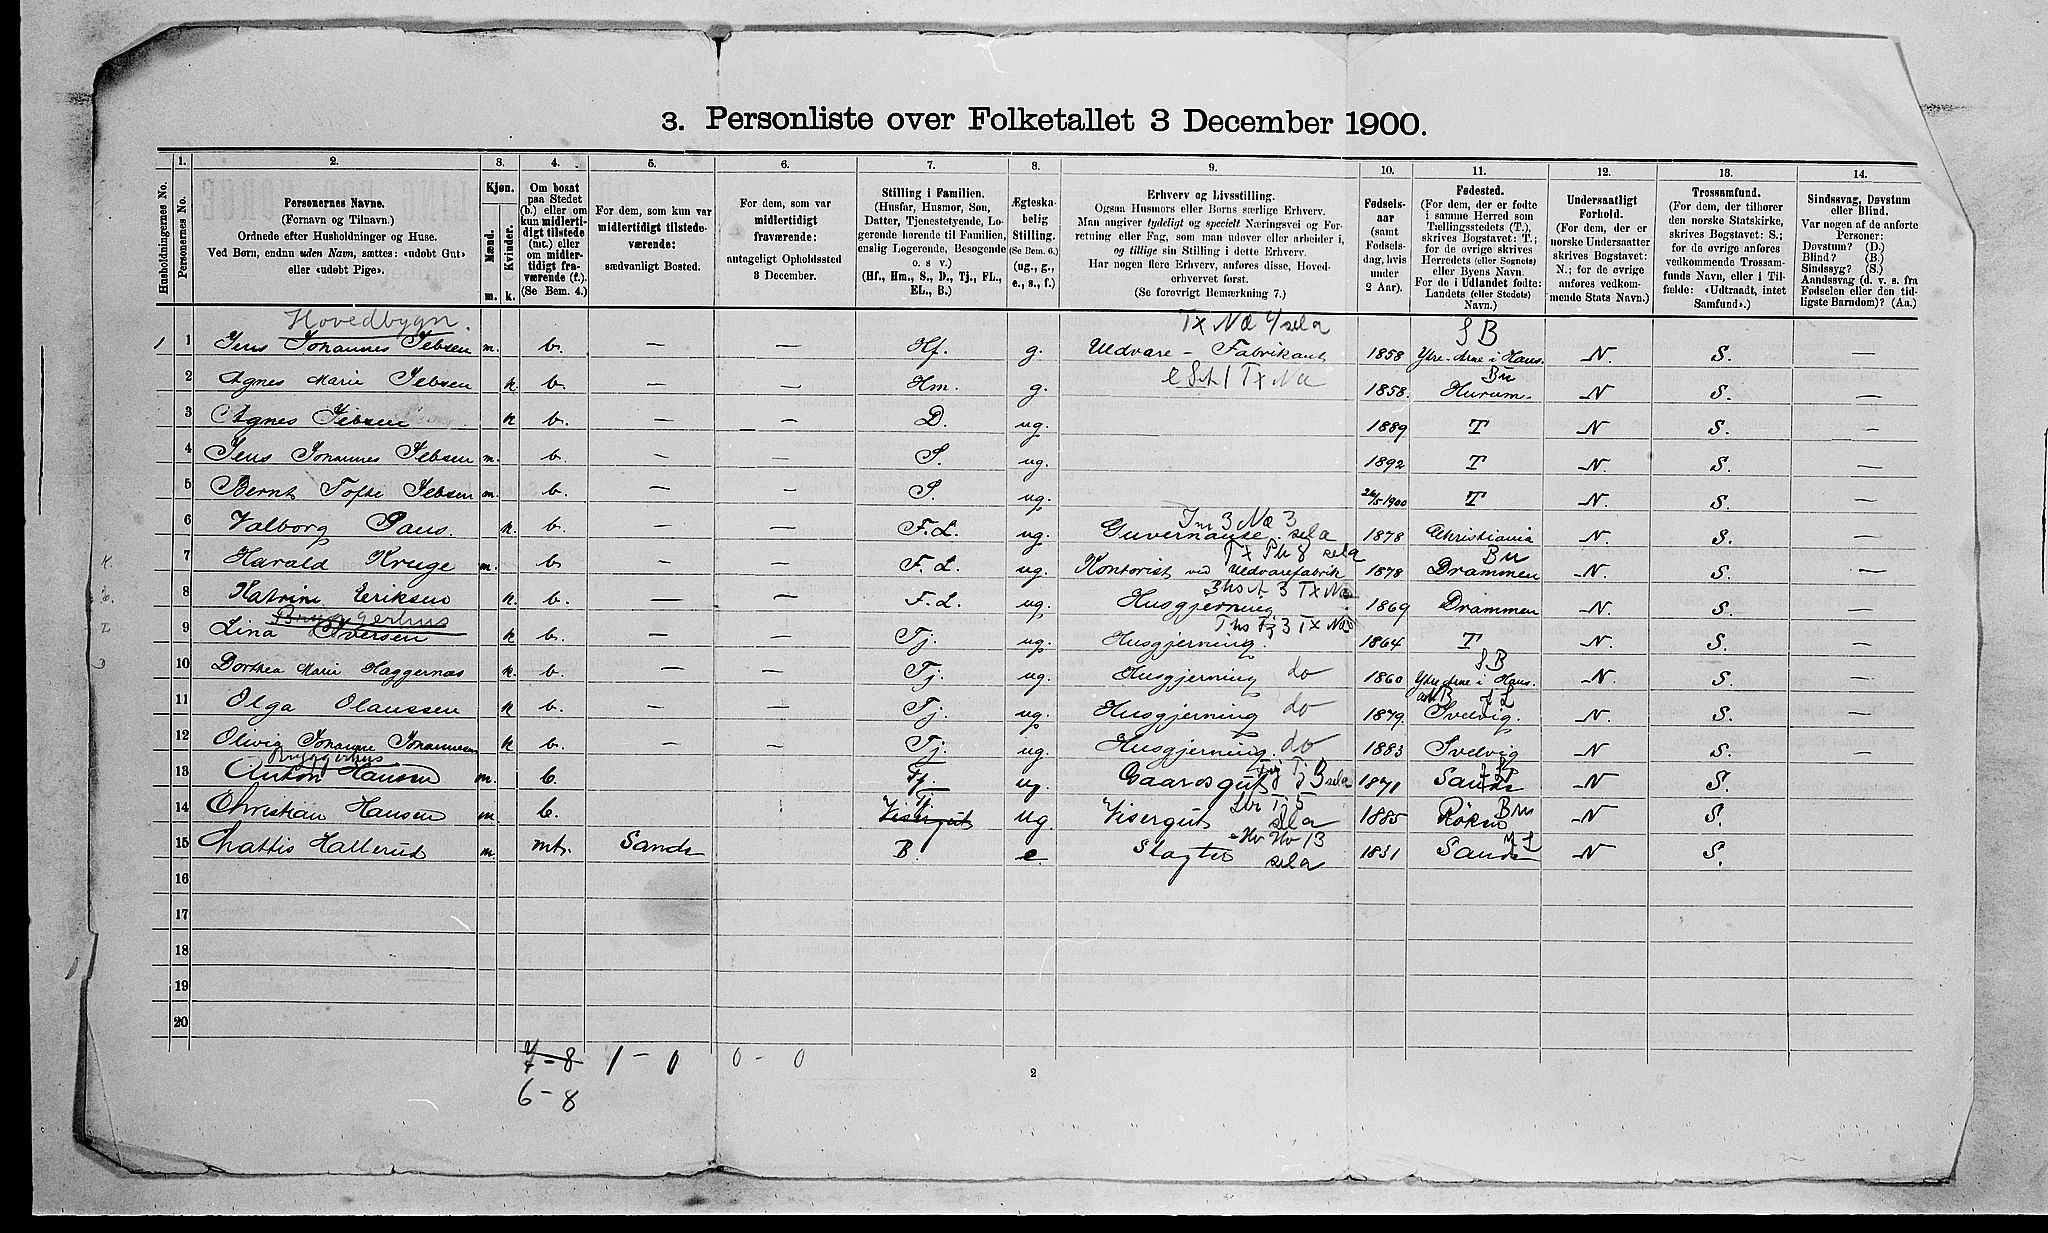 3. Personliste over Folketallet 3 December 1900.
Husholdningernes No.
1. Personernes No.
2. Personernes Navne. (Fornavn og Tilnavn.) Ordnede efter Husholdninger og Huse. Ved Børn, endnu uden Navn, sættes: «udøbt Gut» eller «udøbt Pige».
3. Kjøn. Mænd. m. Kvinder. k.
4. Om bosat paa Stedet (b.) eller om kun midlertidigt tilstede (mt.) eller om midlertidigt fraværende (f.). (Se Bem. 4.)
5. For dem, som kun var midlertidigt tilstedeværende: sædvanligt Bosted.
6. For dem, som var midlertidigt fraværende: antageligt Opholdssted 3 December.
7. Stilling i Familien. (Husfar, Husmor, Søn, Datter, Tjenestetyende, Logerende hørende til Familien, enslig Logerende, Besøgende o. s v.) (Hf., Hm., S., D., Tj., FL., EL., B.)
8. Ægteskabelig Stilling. (Se Bem. 6.) (ug., g., e., s., f.)
9. Erhverv og Livsstilling. Ogsaa Husmors eller Børns særlige Erhverv. Man angiver tydeligt og specielt Næringsvei og Forretning eller Fag, som man udøver eller arbeider i, og tillige sin Stilling i dette Erhverv. Har nogen flere Erhverv, anføres disse, Hovederhvervet først. (Se forøvrigt Bemærkning 7.)
10. Fødselsaar (samt Fødselsdag, hvis under 2 Aar).
11. Fødested. (For dem, der er fødte i samme Herred som Tællingsstedets (T.), skrives Bogstavet: T.; for de øvrige skrives Herredets (eller Sognets) eller Byens Navn. For de i Udlandet fødte: Landets (eller Stedets) Navn.)
12. Undersaatligt Forhold. (For dem, der er norske Undersaatter skrives Bogstavet: N.; for de øvrige anføres vedkommende Stats Navn.)
13. Trossamfund. (For dem, der tilhører den norske Statskirke, skrives Bogstavet: S.; for de øvrige anføres vedkommende Trossamfunds Navn, eller i Tilfælde: «Udtraadt, intet Samfund».)
14. Sindssvag, Døvstum eller Blind. Var nogen af de anførte Personer: Døvstum? (D.) Blind? (B.) Sindssyg? (S.) Aandssvag (d. v. s. fra Fødselen eller den tidligste Barndom)? (Aa.)
Hovedbygn. Tx Næ 4 sela SB
1 1 Jens Johannes Jebsen m. b. — — Hf. g. Uldvare-Fabrikant 1858 Ytre-Arne i Haus. N. S. —
2 Agnes Marie Jebsen k b. — — Hm. g. 1858. Hurum. Bu N S. —
3 Agnes Jebsen k b. — — D. ug. 1889 T N S. —
4 Jens Johannes Jebsen m. b. — — S. ug. 1892 T N S. —
5 Bernt Tofte Jebsen m. b. — — S. ug. 26/5 1900 T N. S. —
6 Valborg Paus. k. b. — — F.L. ug. Guvernante. sela 1878 Christiania N. S. —
7 Harald Kruge m. b. — — F.L. ug. Kontorist ved Uldvarefabrik 1878 Drammen Bu N. S. —
8 Katrine Eriksen k. b. — — F.L. ug. Husgjerning 1869 Drammen N. S. —
Bryggerhus
9 Lina Iversen k b. — — Tj. ug. Husgjerning. 1864 T N. S. —
10 Dorthea Marie Haggernæs k. b. — — Tj. ug. Husgjerning do 1860 Ytre Arne i Haus. SB N. S. —
11 Olga Olaussen k b. — — Tj. ug. Husgjerning do 1879. Svelvig. N. S. —
12 Olivia Johanne Johannesen k b. — — Tj. ug. Husgjerning. do 1883 Svelvig N S. —
Bryggerhus
13 Anton Hansen m. b. Tj. ug. Gaardsgut 1871 Sande N S. —
14 Christian Hansen m. b. Tj. Visergut ug. Visergut sela 1885 Røken Bu N S. —
15 Mattis Hallerud m. mt. Sande B. e Slagter sela 1851 Sande N S.
16
17
18
19
20
7-8 1-0 0-0
6-8
2